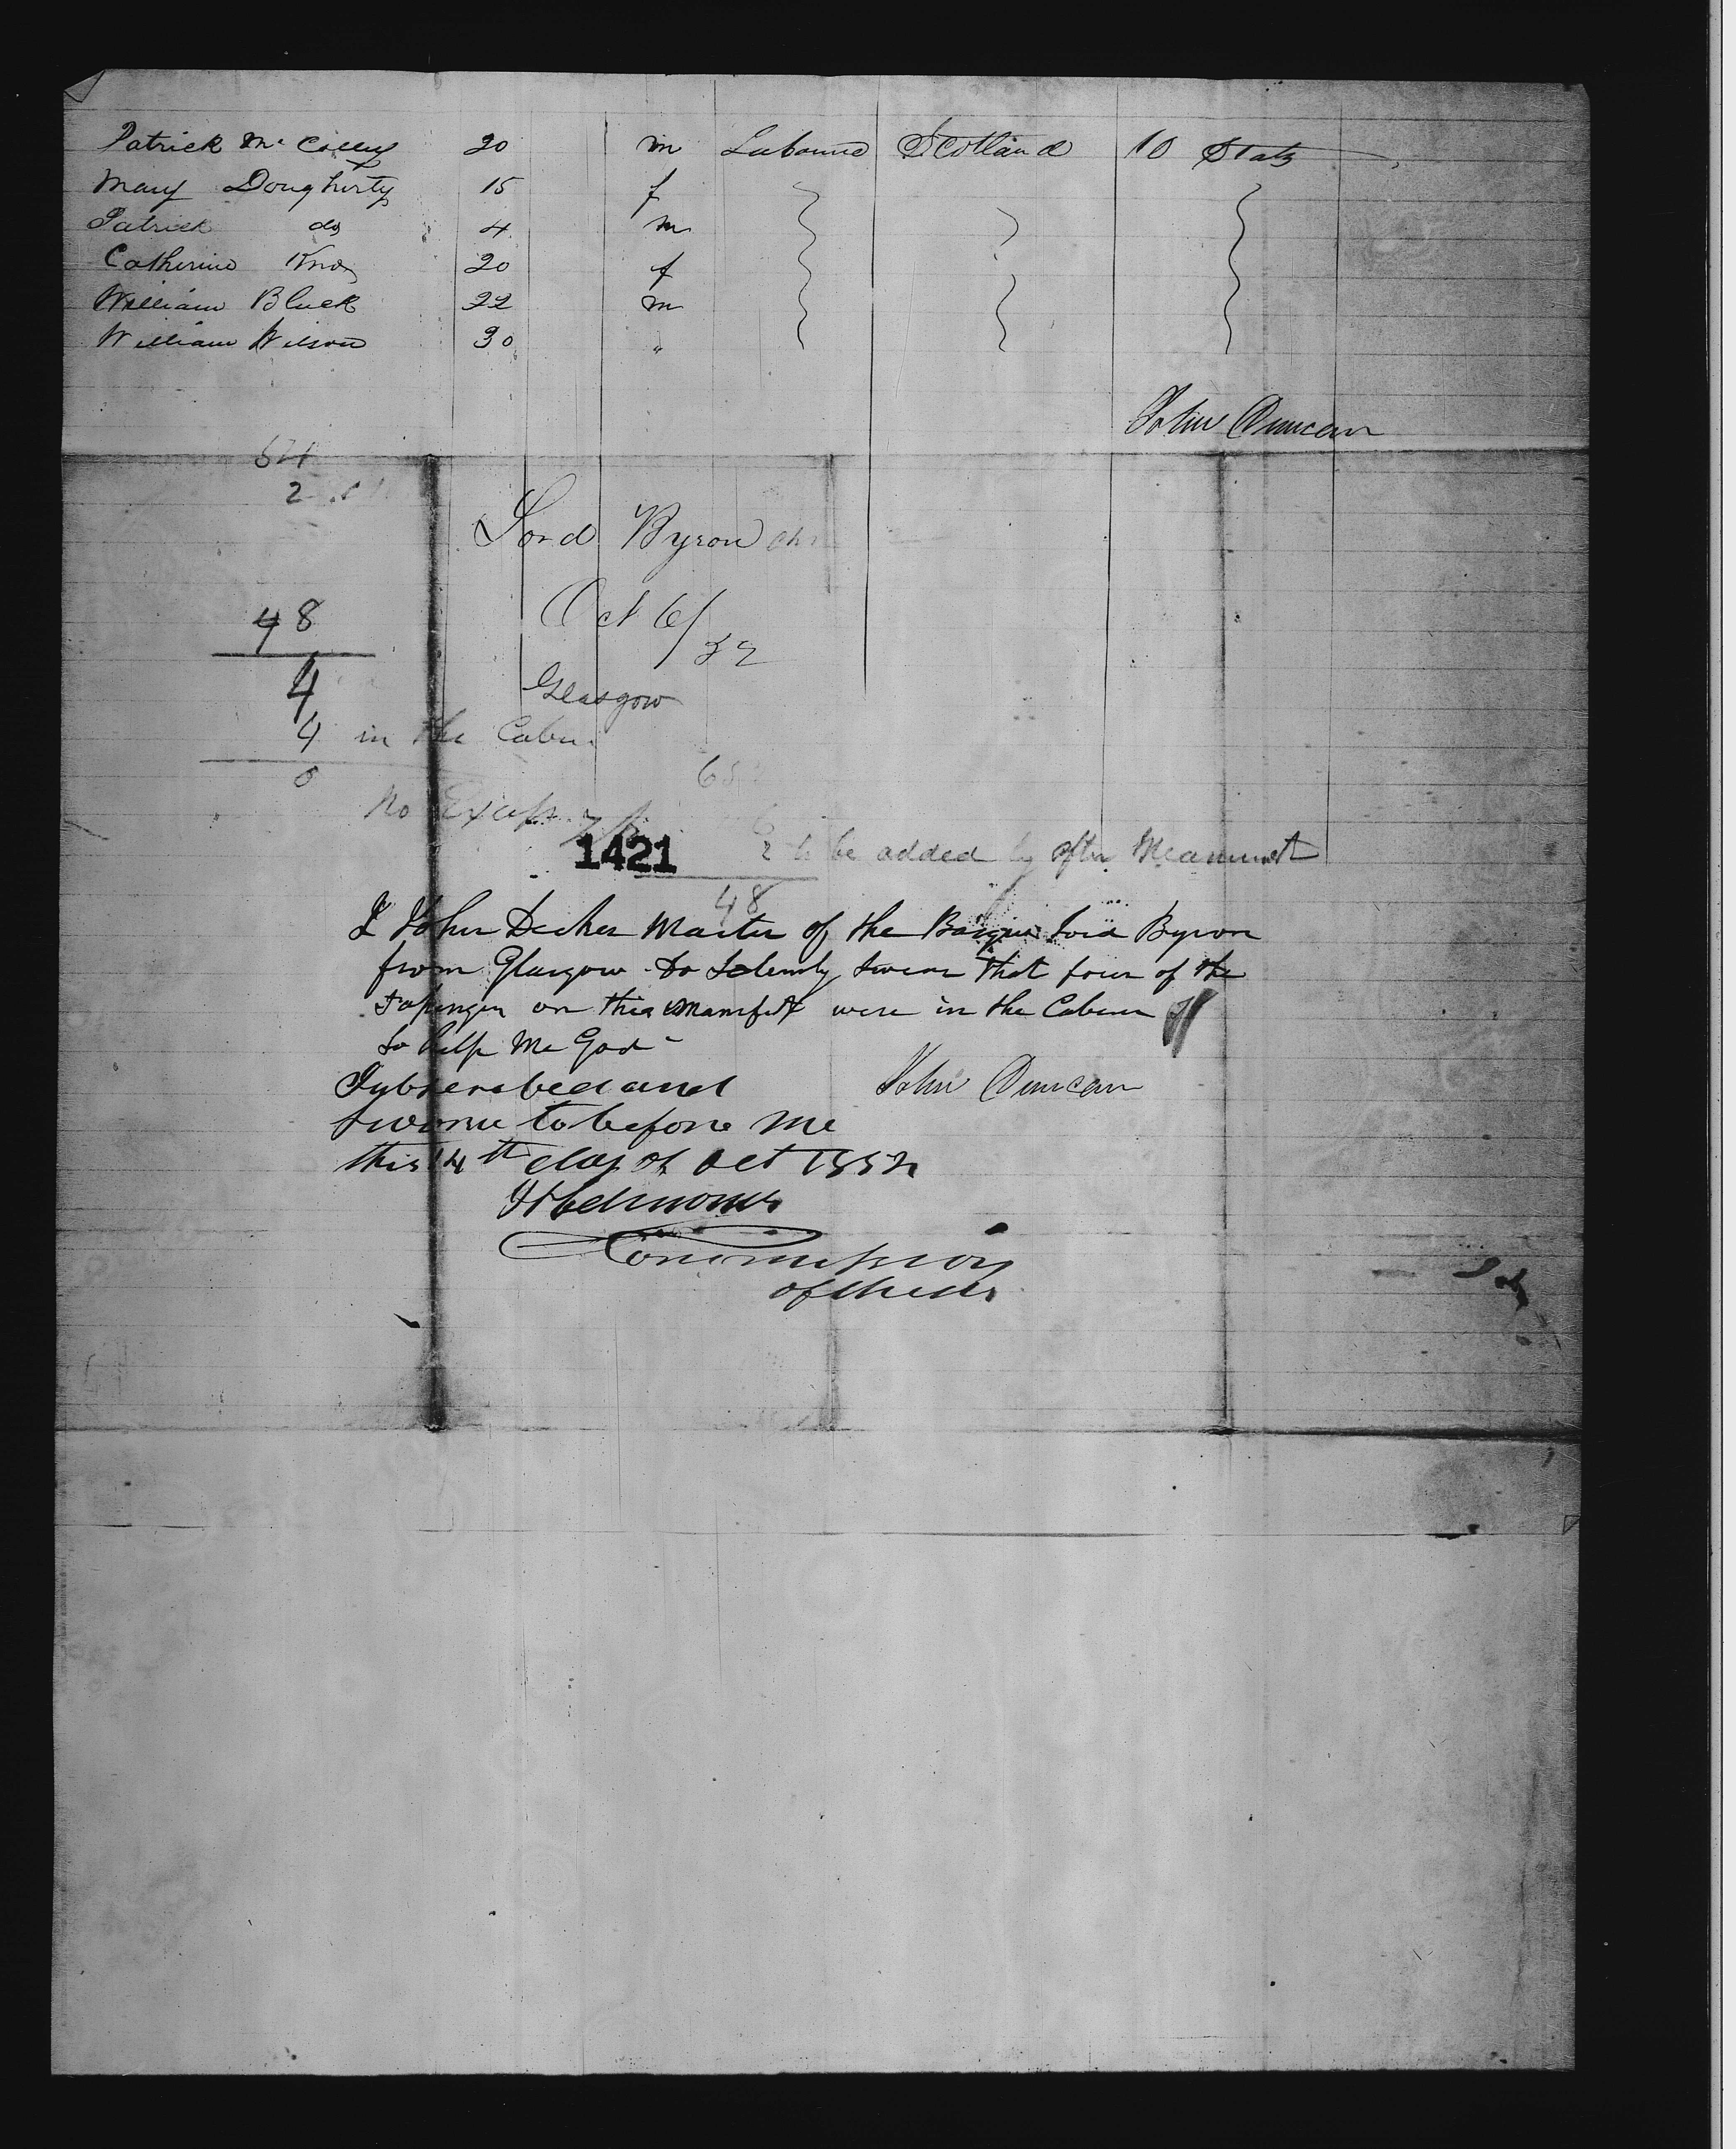 Patrick Mc Colley 20 m Labourer Scotland U States
Mary Dougherty 15 f
Patrick do 4 m
Catherine Knox 20 f
William Black 22 m
William Wilson 30 "
John Duncan
2
Lord Byron
Oct 6/52
48
4
Glasgow
4 in the Cabin
0
No Excess
1421
2 to be added by after Measurment
48
I John Master of the Barque Lord Byron
from Glasgow Do Solemly Swear that four of the
Passenger on this Manifest were in the Cabin
So help Me God
Subscribed and John Duncan
Sworne to before me
this 14th day of Oct 1852
Commission
of